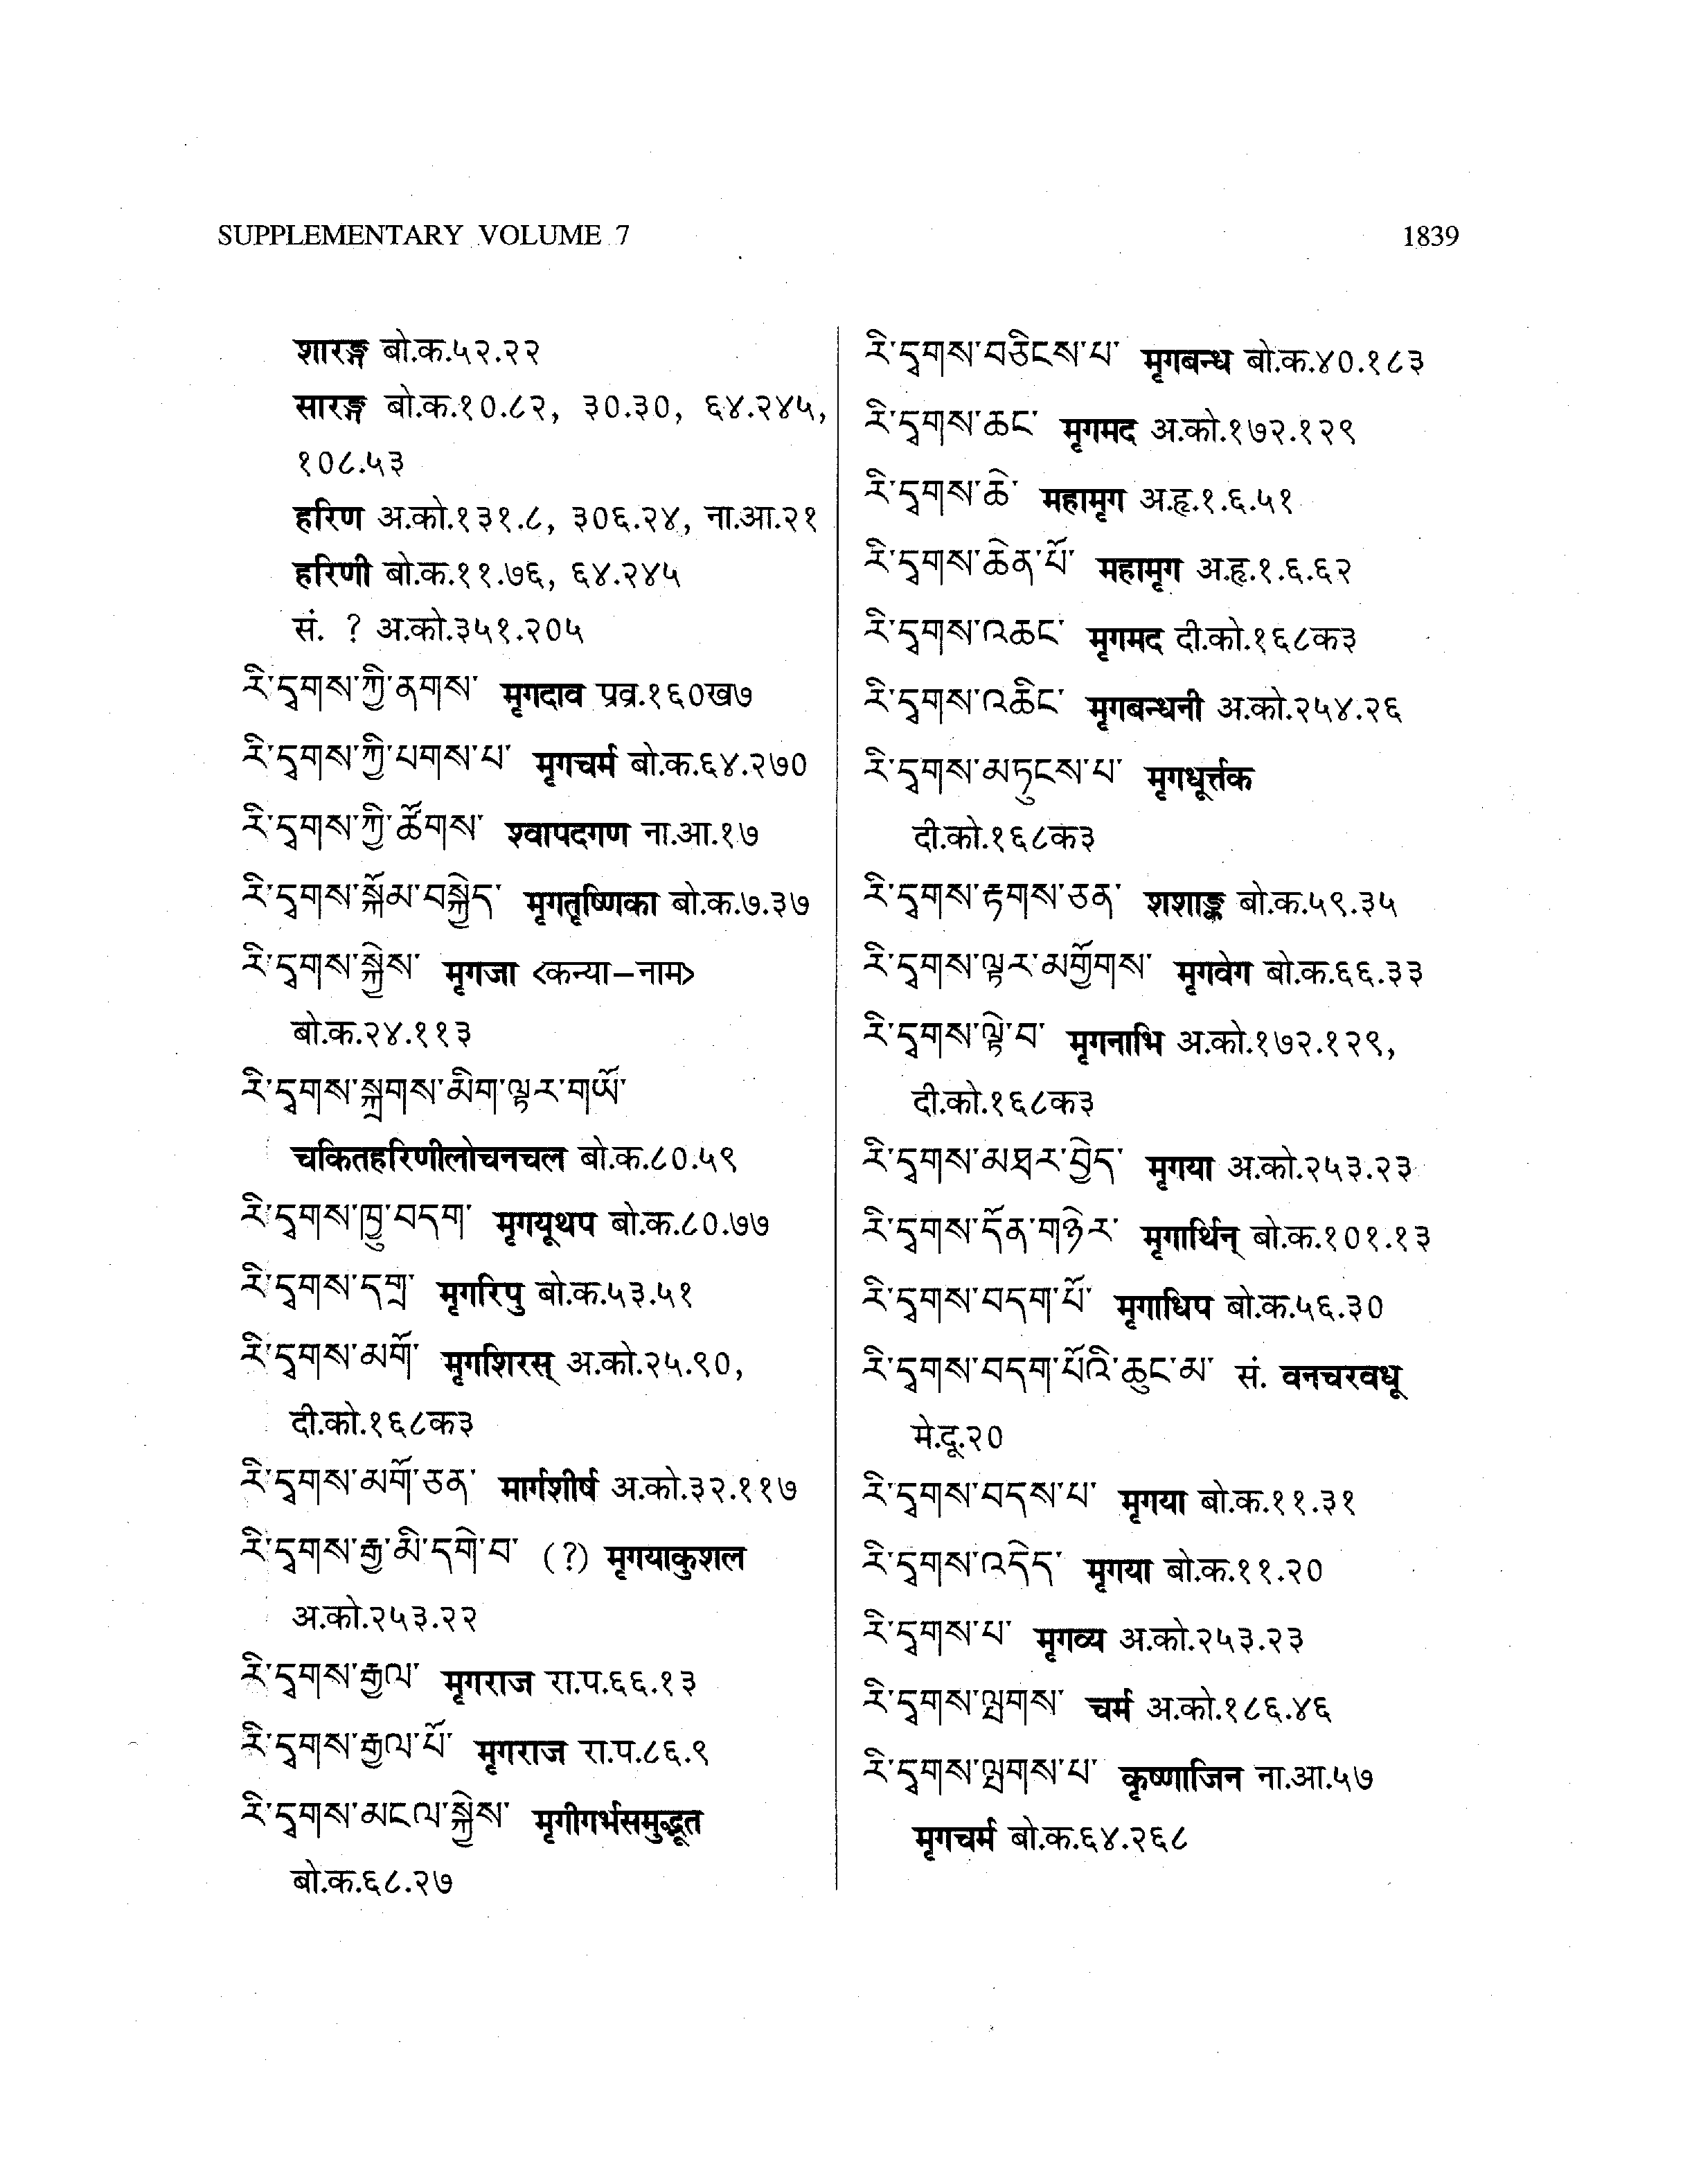 SUPPLEMENTARY VOLUME 7
1839
शारङ्ग बो.क.५२.२२
सारङ्ग बो.क.१०.८२, ३०.३०, ६४.२४५,
१०८.५३
हरिण अ.को.१३१.८, ३०६.२४, ना.आ.२१
हरिणी बो.क.११.७६, ६४.२४५
सं. ? अ.को.३५१.२०५
རི་དྭགས་ཀྱི་ནགས་ मृगदाव प्रव्र.१६०ख७
རི་དྭགས་ཀྱི་པགས་པ་ मृगचर्म बो.क.६४.२७०
རི་དྭགས་ཀྱི་ཚོགས་ श्वापदगण ना.आ.१७
རི་དྭགས་སྐོམ་བསྐྱེད་ मृगतृष्णिका बो.क.७.३७
རི་དྭགས་སྐྱེས་ मृगजा <कन्या–नाम>
बो.क.२४.११३
རི་དྭགས་སྐྲགས་མིག་ལྟར་གཡོ་
चकितहरिणीलोचनचल बो.क.८०.५९
རི་དྭགས་ཁྱུ་བདག་ मृगयूथप बो.क.८०.७७
རི་དྭགས་དགྲ་ मृगरिपु बो.क.५३.५१
རི་དྭགས་མགོ་ मृगशिरस् अ.को.२५.९०,
दी.को.१६८क३
རི་དྭགས་མགོ་ཅན་ मार्गशीर्ष अ.को.३२.११७
རི་དྭགས་རྒྱ་མི་དགེ་བ་ (?) मृगयाकुशल
अ.को.२५३.२२
རི་དྭགས་རྒྱལ་ मृगराज रा.प.६६.१३
རི་དྭགས་རྒྱལ་པོ་ मृगराज रा.प.८६.९
རི་དྭགས་མངལ་སྐྱེས་ मृगीगर्भसमुद्भूत
बो.क.६८.२७
རི་དྭགས་བཅིངས་པ་ मृगबन्ध बो.क.४०.१८३
རི་དྭགས་ཆང་ मृगमद अ.को.१७२.१२९
རི་དྭགས་ཆེ་ महामृग अ.हृ.१.६.५१
རི་དྭགས་ཆེན་པོ་ महामृग अ.हृ.१.६.६२
རི་དྭགས་འཆང་ मृगमद दी.को.१६८क३
རི་དྭགས་འཆིང་ मृगबन्धनी अ.को.२५४.२६
རི་དྭགས་མཏུངས་པ་ मृगधूर्त्तक
दी.को.१६८क३
རི་དྭགས་རྟགས་ཅན་ शशाङ्क बो.क.५९.३५
རི་དྭགས་ལྟར་མགྱོགས་ मृगवेग बो.क.६६.३३
རི་དྭགས་ལྟེ་བ་ मृगनाभि अ.को.१७२.१२९,
दी.को.१६८क३
རི་དྭགས་མཐར་བྱེད་ मृगया अ.को.२५३.२३
རི་དྭགས་དོན་གཉེར་ मृगार्थिन् बो.क.१०१.१३
རི་དྭགས་བདག་པོ་ मृगाधिप बो.क.५६.३०
རི་དྭགས་བདག་པོའི་ཆུང་མ་ सं. वनचरवधू
मे.दू.२०
རི་དྭགས་བདས་པ་ मृगया बो.क.११.३१
རི་དྭགས་འདེད་ मृगया बो.क.११.२०
རི་དྭགས་པ་ मृगव्य अ.को.२५३.२३
རི་དྭགས་ལྤགས་ चर्म अ.को.१८६.४६
རི་དྭགས་ལྤགས་པ་ कृष्णाजिन ना.आ.५७
मृगचर्म बो.क.६४.२६८